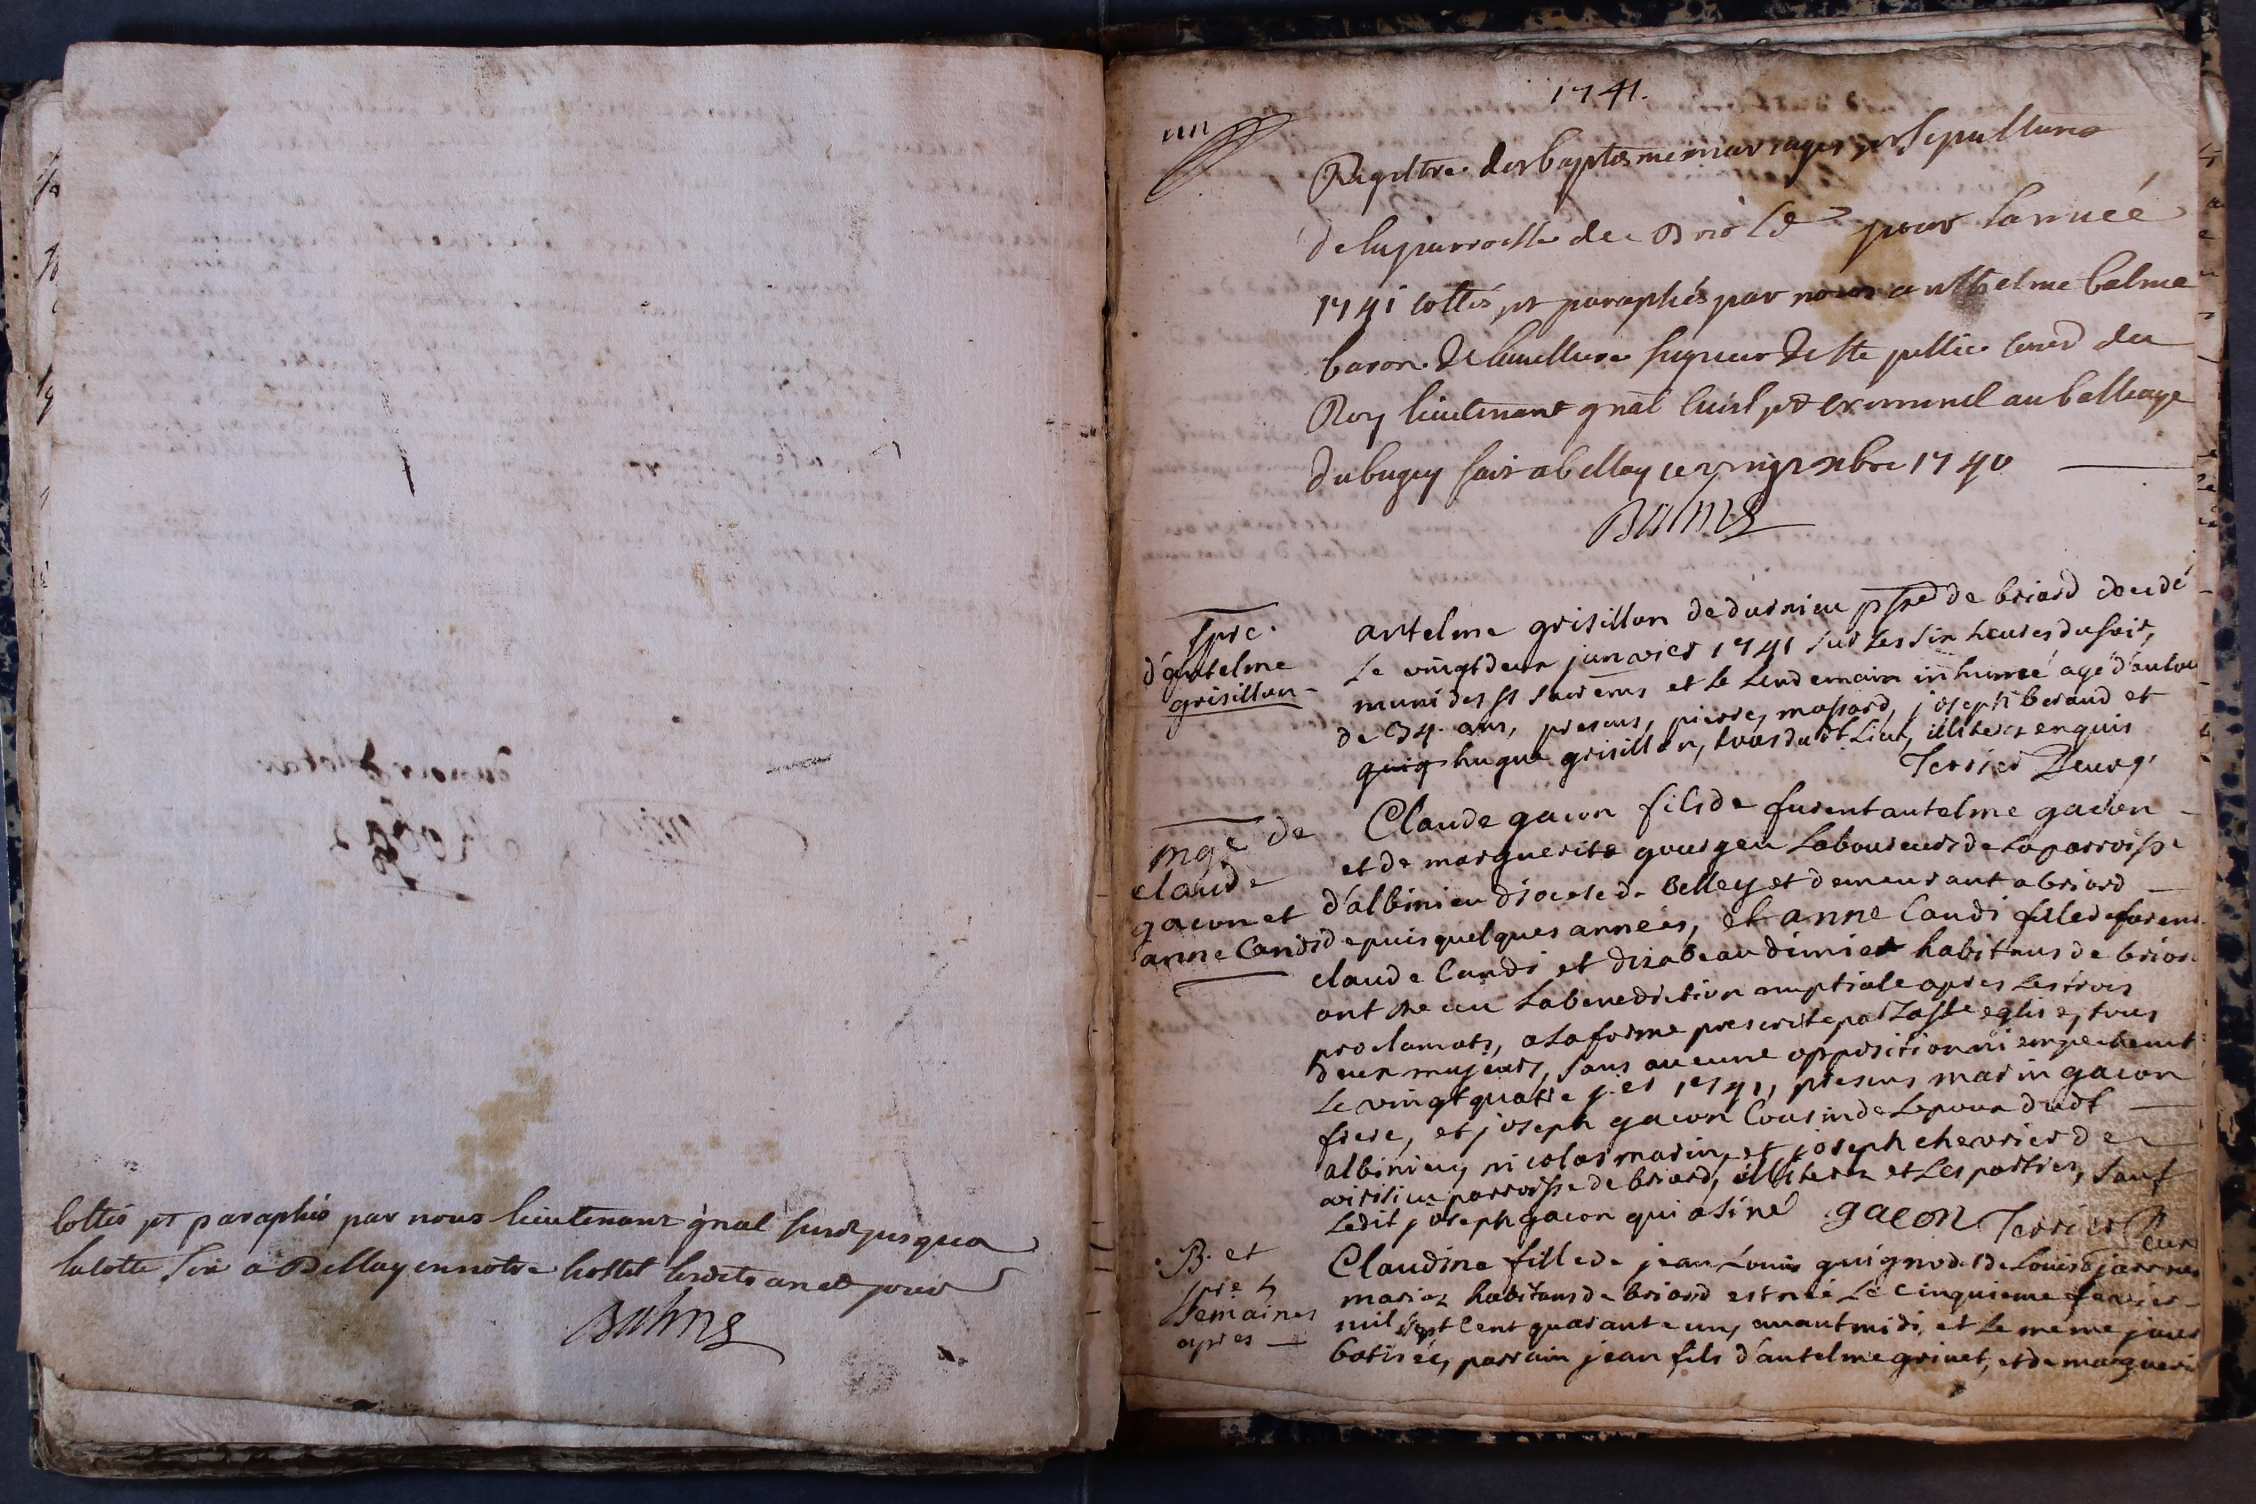 Cottés et paraphés par nous lieutenant gnal susd jusqua
la cotte six a Bellay en notre hostel lesdits an et jour
Balme
1741.
Registre des baptesme mariages et sepulture
de la parroisse de Briord pour lannée
1741 cottés et paraphés par nous anthelme balme
baron de seigneur de Ste jullie conser du
Roy lieutenant gnal civil et criminel au balliage
du bugey fait a bellay ce xbre 1740
Balme
Spre.
d'antelme
grisillon
antelme grisillon de dornieu psse de briord decedé
le vingt deux janvier 1741 sur les six heures du soir,
muni des Sts sacrems et le lendemain inhumé agé d'autou
de 34. ans, presens, pierre massard, joseph beraud et
hugue grisillon, tous dudt lieu, illiterez enquis
Terrier
mge de
claude
gacon et
anne Candi
Claude gacon fils de furent antelme gacon
et de marguerite gourgeu laboureurs de la parroisse
d'albinieu diocese de Belley et demeurant a briord
depuis quelques années, et anne Candi fille de furent
claude Candi et disabeau dimier habitans de briord
ont receu la benediction nuptiale apres les trois
proclamats, a la forme prescrite par la Ste eglise, tous
deux majeurs, sans aucune opposition ni empechemt
le vingt quatre j.er 1741, presens marin gacon
frere, et joseph gacon Cousin de lepoux dudt
albinieu, nicolas marin, et joseph chevrier de
parroisse de briord, illiterez et les parties, sauf
ledit joseph gacon qui a siné gacon Terrier
B. et
spre 5
semaines
apres
Claudine fille de jean Louis guignod et de Louise
mariez habitans de briord est née le cinquieme fevrier
mil sept Cent quarante un, avant midi, et le meme jour
batisée, parrain jean fils d'antelme grinet, et de marguerit